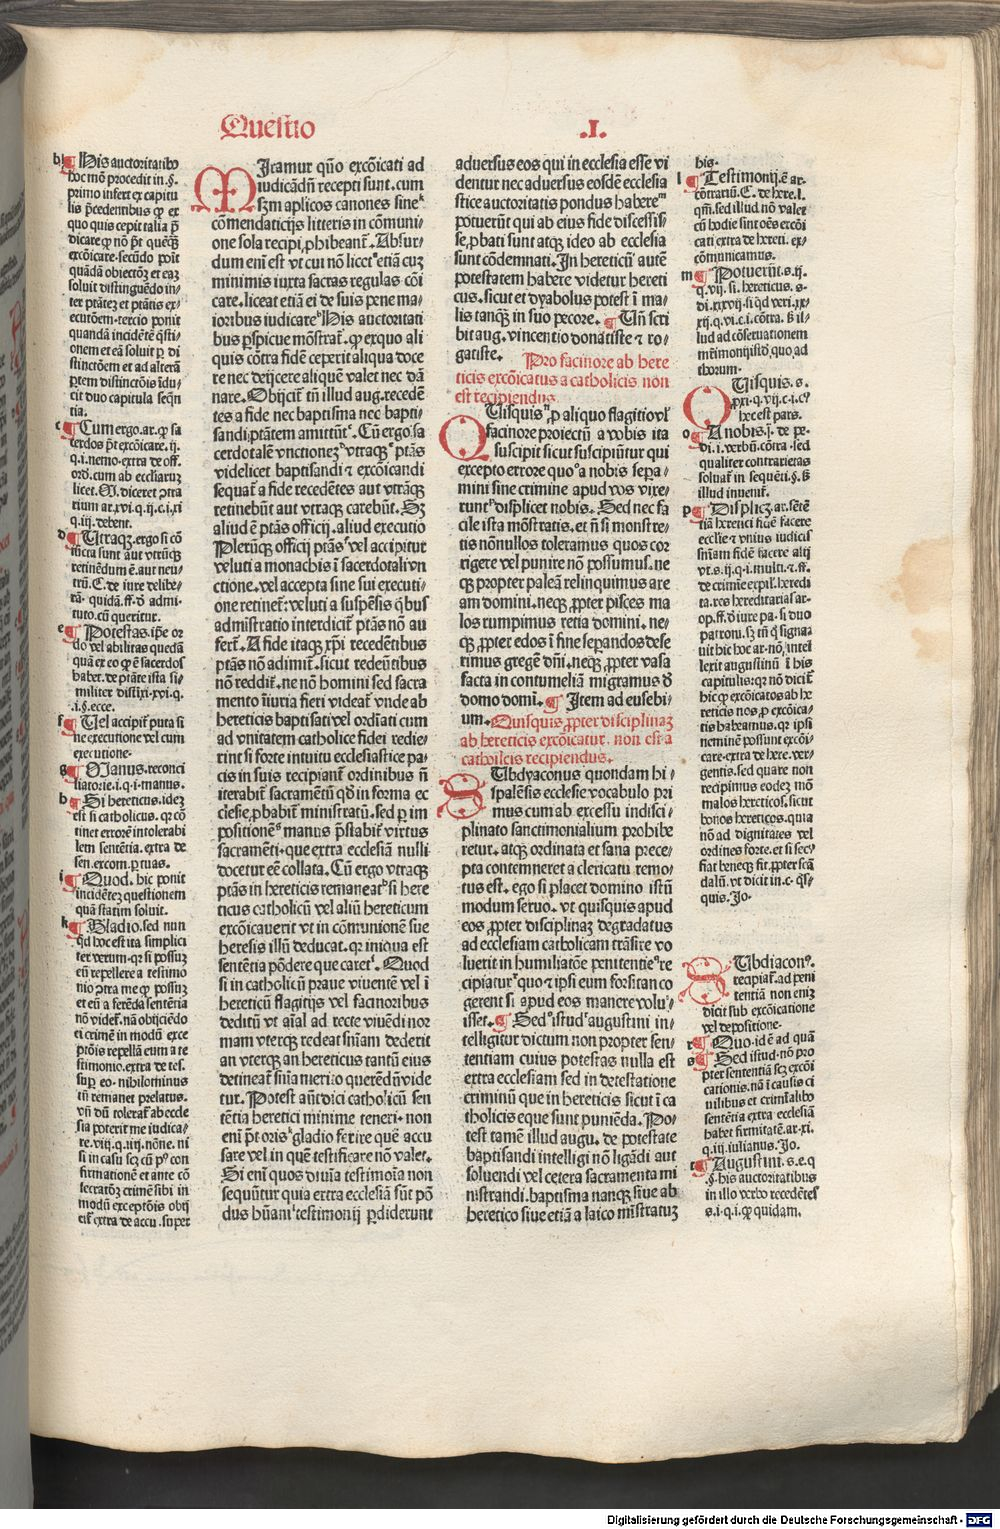 Questio .I.
b ¶ His auctoritatibo
hoc mō procedit in.§.
primo infert ex capitu
lis p̄cedentibus ꝙ ex
quo quis cepit talia p̄
dicare ꝙ nō pōt quēqꝫ
excōicare. secūdo poit
quādā obiectōꝫ et eaꝫ
soluit distinguēdo in-
ter ptātez et ptātis ex-
ecutōem. tercio ponit
quandā incidētē q̄sti-
onem et eā soluit p di
stinctōem et ad alterā
ptem distinctōis īdu-
cit duo capitula seqn̄
tia.
c ¶ Cum ergo. ar. ꝙ sa
cerdos pōt excōicare. ij.
q. i. nemo. extra de off.
ord. cum ab eccliaruꝫ
licet. Sꝫ. diceret ꝯtra
rium ar. xvi. q. ij. c. i. xi
q. iij. debent.
d ¶ Utraqꝫ. ergo si cō
iūcta sunt aut vtrūqꝫ
retinēdum ē. aut neu-
trū. C. de iure delibe-
ra. quidā. ff. ꝺ admi-
tuto. cū queritur.
e ¶ Potestas. ip̄e or
do vel abilitas quedā
quā ex eo ꝙ ē sacerdos
habet. de ptāte ista si-
militer distixi. xvi. q.
.i. §. ecce.
f ¶ Uel accipit̄ puta si
ne executione vel cum
executione.
g ¶ Manus. reconci
liatorie. i. q. i. manus.
h ¶ Si hereticus. idez
est si catholicus. qꝛ cō
tinet errorē intolerabi
lem sentētia. extra de
sen. excom. p tuas.
i ¶ Quod. hic ponit
incidētez questionem
quā statim soluit.
k ¶ Gladio. sed nun
qd hoc est ita simplici
ter verum. qꝛ si possuꝫ
eū repellere a testimo
nio ꝯtra me ꝙ possuꝫ
et eū a ferēda sentētia
nō videt̄. nā obijciēdo
ei crimē in modū exce
ptōis repellā eum a te
stimonio. extra de tes.
sup eo. nihilominus
tn̄ remanet prelatus.
vn̄ dū tolerat̄ ab eccle
sia poterit me iudica-
re. viij. q. iiij. nōne. ni
si in casu scꝫ cū pꝰ con
firmationē et ante cō
secratōꝫ crimē sibi in
modū exceptōis obij
cit̄ extra de accu. super
MIramur qūo excōicati ad
iudicādū recepti sunt. cum
scꝺm aplicos canones sine
cōmendaticijs litteris in cōmuni-
one sola recipi, phibeant̄. Absur-
dum eni est vt cui nō licet etiā cuꝫ
minimis iuxta sacras regulas cōi
care. liceat etiā ei de suis pene ma-
ioribus iudicare. His auctoritati
bus pspicue mōstrat̄. ꝙ exquo ali
quis cōtra fidē ceperit aliqua doce
re nec deijcere aliquē valet nec dā
nare. Obijcit̄ tn̄ illud aug. recedē
tes a fide nec baptisma nec bapti-
sandi ptātem amittūt. Cū ergo sa
cerdotale vnctionez vtraqꝫ ptās
videlicet baptisandi et excōicandi
sequat̄ a fide recedētes aut vtrāqꝫ
retinebūt aut vtraqꝫ carebūt. Sꝫ
aliud ē ptās officij. aliud executio
Plerūqꝫ officij ptās vel accipitur
veluti a monachis ī sacerdotali vn
ctione. vel accepta sine sui executi-
one retinet̄: veluti a suspēsis qbus
admīstratio interdicit̄ ptās nō au
fert̄. A fide itaqꝫ xp̄i recedētibus
ptās nō adimit̄. sicut redeūtibus
nō reddit̄. ne nō homini sed sacra
mento iniuria fieri videat̄ vnde ab
hereticis baptisati vel ordīati cum
ad vnitatem catholice fidei redie-
rint si forte intuitu ecclesiastice pa-
cis in suis recipiant̄ ordinibus n̄
iterabit̄ sacramētū qd in forma ec
clesie, pbabit̄ ministratū. sed p im
positionē manus p̄stabit̄ virtus
sacramēti. que extra ecclesiā nulli
docetur eē collata. Cū ergo vtraqꝫ
ptās in hereticis remaneat si here
ticus catholicū vel aliū hereticum
excōicauerit vt in cōmunionē sue
heresis illū deducat. qꝛ iniqua est
sentētia pōdere que caret. Quod
si in catholicū praue viuentē vel ī
hereticū flagitijs vel facinoribus
deditū vt aīal ad recte viuēdi nor
mam vterqꝫ redeat sn̄iam dederit
an vterqꝫ an hereticus tantū eius
detineat̄ sn̄ia merito querēdū vide
tur. Potest aūt dici catholicū sen
tētia heretici minime teneri. non
eni pōt oris gladio ferire quē accu
sare vel in quē testificare nō valet.
Si eni quos diuīa testimoīa non
sequūtur quia extra ecclesiā sūt pō
dus hūani testimonij pdiderunt
aduersus eos qui in ecclesia esse vi
dentur nec aduersus eosdē ecclesia
stice auctoritatis pondus habere
potuerūt qui ab eius fide discessis-
se, pbati sunt atqꝫ ideo ab ecclesia
sunt cōdemnati. In hereticū autē
potestatem habere videtur hereti
cus. sicut et dyabolus potest ī ma-
lis tanqꝫ in suo pecore. ¶ Un̄ scri
bit aug. vincentio donatiste et ro-
gatiste. Pro facinore ab here
ticis excōicatus a catholicis non
est recipiendus.
QUisquis p aliquo flagitio vl̓
facinore proiectū a vobis ita
suscipit sicut suscipiūtur qui
excepto errore quo a nobis sepa-
mini sine crimine apud vos vixe-
runt displicet nobis. Sed nec fa
cile ista mōstratis. et n̄ si monstre-
tis nōnullos toleramus quos cor
rigere vel punire nō possumus. ne
qꝫ propter paleā relinquimus are
am domini. neqꝫ, ppter pisces ma
los rumpimus retia domini. ne-
qꝫ, ppter edos ī fine sepandos dese
rimus gregē dn̄i. neqꝫ, ppter vasa
facta in contumeliā migramus ꝺ
domo domi. ¶ Item ad eusebi-
um. Quisquis, ppter disciplinaꝫ
ab hereticis excōicatur. non est a
catholicis recipiendus.
SUbdyaconus quondam hi-
spalēsis ecclesie vocabulo pri
mus cum ab excessu indisci-
plinato sanctimonialium prohibe
retur. atqꝫ ordinata et sana prece-
pta contemneret a clericatu remo-
tus est. ego si placet domino istū
modum seruo. vt quisquis apud
eos, ppter disciplinaꝫ degradatus
ad ecclesiam catholicam trāsire vo
luerit in humiliatōe penitentie re
cipiatur quo et ipsi eum forsitan co
gerent si apud eos manere volu-
isset. ¶ Sed istud augustini in-
telligitur dictum non propter sen-
tentiam cuius potestas nulla est
extra ecclesiam sed in detestatione
criminū que in hereticis sicut ī ca
tholicis eque sunt puniēda. Po-
test tamē illud augu. de potestate
baptisandi intelligi nō ligādi aut
soluendi vel cetera sacramenta mi
nistrandi. baptisma nanqꝫ siue ab
heretico siue etiā a laico mīstratuꝫ
his.
l ¶ Testimonij. ē ar.
cōtrariū. C. de here. l.
qm̄. sed illud nō valet
cū hodie sint oēs excōi
cati extra de hereti. ex-
cōmunicamus.
m ¶ Potuerūt. s. ij.
q. vij. si. hereticus. s-
di. xxvij. si qd veri. xx-
xij. q. vi. c. i. cōtra. ꝸ il-
lud ad cōseruationem
mr̄imonij istd quo ad
thorum.
QUisquis. s.
pxi. q. vij. c. i. cꝰ
hec est pars.
o ¶ A nobis. j. de pe-
di. i. verbū. cōtra. sed
qualiter contrarietas
soluat̄ in sequēti. §. ꝸ
illud inuenit̄.
p ¶ Displicꝫ. ar. sētē
tiā heretici fidē facere
ecclie et vnius iudicis
sn̄iam fidē facere alij
vt. s. ij. q. i. multi. et. ff.
de crimīe expil. heredi
ta. res hereditarias ar-
op. ff. ꝺ iure pa. si duo
patroni. sꝫ tn̄ q signa
uit hic hoc ar. nō, intel
lexit augustinū ī his
capitulis: qꝛ nō dicit̄
hic ꝙ excōicatos ab he
reticis nos p excōica-
tis habeamus. qꝛ ipsi
neminē possunt excōi-
care. extra de here. ver-
gentis. sed quare non
recipimus eodeꝫ mō
malos hereticos. sicut
bonos hereticos. quia
nō ad dignitates vel
ordines forte. et si secꝰ
fiat beneqꝫ fit. ppter scā
dalū. vt dicit in. c. q̄s-
quis. Jo.
SUbdiaconꝰ.
recipiat̄. ad peni
tentiā non enim
dicit sub excōicatione
vel depositione.
r ¶ Quo. id ē ad quā
s ¶ Sed istud. nō pro
pter sententiā scꝫ excōi
cationis. nā ī causis ci
uilibus et crimīalibo
sentētia extra ecclesiā
habet firmitatē. ar. xi.
q. iij. iulianus. Jo.
t ¶ Augustini. s. e. q
.§. his auctoritatibus
in illo verbo recedētes
s. i. q. i. ꝙ quidam.
Digitalisierung gefördert durch die Deutsche Forschungsgemeinschaft - DFG